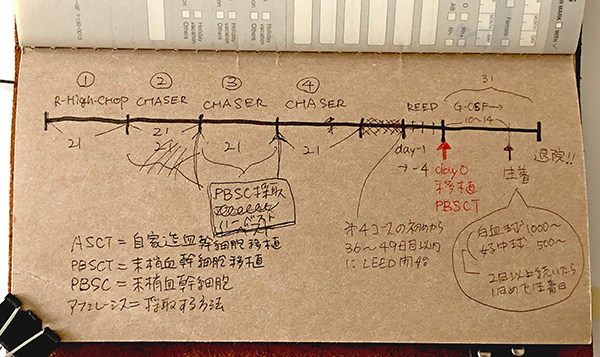 Female
Holiday
vacation
Others
Holiday
vacation
Others
① ② ③ ④
R-High-CHOP CHASER CHASER CHASER
21 21 21 21
31
G-CSF→
10~14
day-1
→-4
day0
移植
PBSCT
生着
退院!!
PBSC採取
ハーベスト
ASCT=自家造血幹細胞移植
PBSCT=末梢血幹細胞移植
PBSC=末梢血幹細胞
アフェレーシス=採取する方法
※4コースの初めから
36~49日目以内
にLEED開始
白血球 1000~
好中球 500~
2日以上続いたら
1日めを生着日